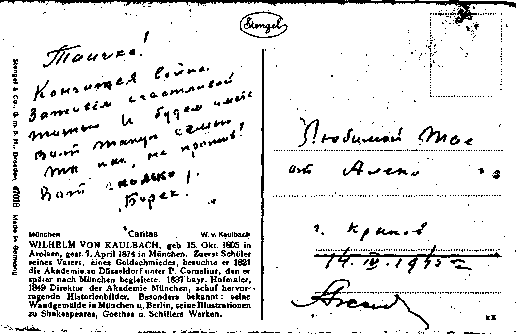 Stengel
Таичка!
Кончится война.
Заживём счастливой
жизнью и будем иметь
вот такую семью!
Так или, не против?
Вот сколько!
Борек.
München "Caritas" W. v. Kaulbach
WILHELM VON KAULBACH, geb 15. Okt. 1805 in
Arolsen, gest. 7. April 1874 in München. Zuerst Schüler
seines Vaters, eines Goldschmiedes, besuchte er 1821
die Akademie zu Düsseldorf unter P. Cornelius, den er
später nach München begleitete. 1837 bayr. Hofmaler,
1849 Direktor der Akademie München, schuf hervor-
ragende Historienbilder. Besonders bekannt: seine
Wandgemälde in München u. Berlin, seine Illustrationen
zu Shakespeares, Goethes u. Schillers Werken.
Stengel & Co., G. m. b. H., Dresden Made in Germany
Любимой Тае
от
г. Краков
14.IV.1945 г